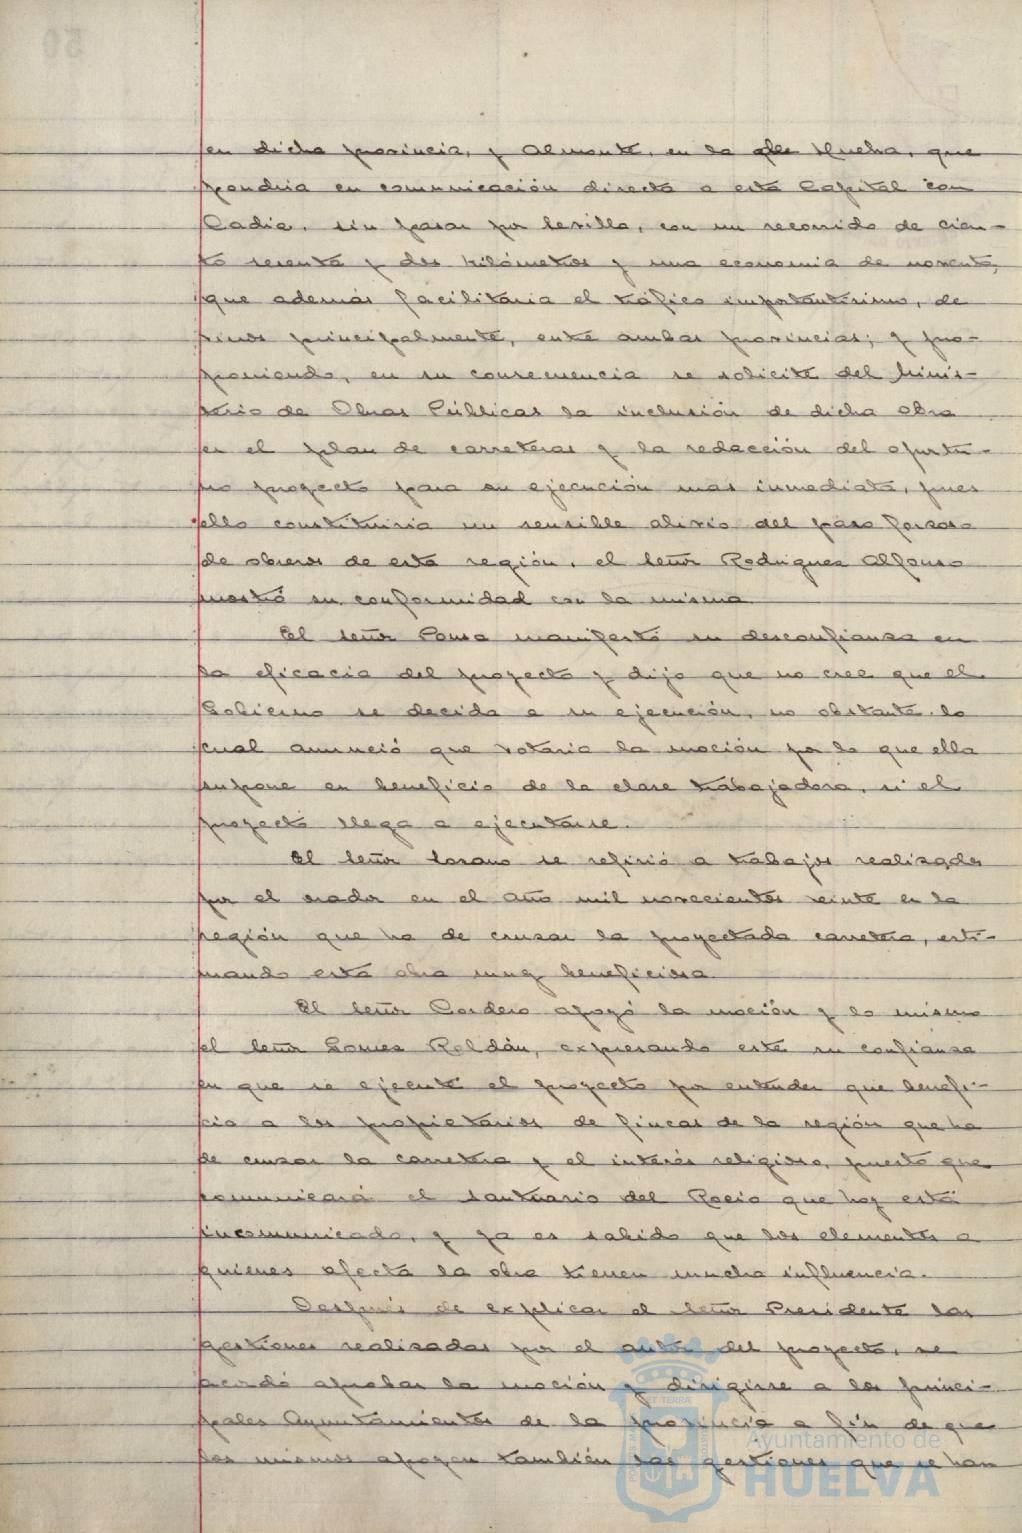 en dicha provincia, y Almonte, en la de Huelva, que
pondria en comunicación directa a esta Capital con
Cadiz, sin pasar por Sevilla, con un recorrido de cien-
to sesenta y dos kilómetros y una economia de noventa,
que además facilitaria el tráfico importantisimo, de
vinos principalmente, entre ambas provincias; y pro-
poniendo, en su consecuencia se solicite del Minis-
terio de Obras Públicas la inclusión de dicha obra
en el plan de carreteras y la redacción del oportu-
no proyecto para su ejecución mas inmediata, pues
ello constituiria un sensible alivio del paro forzoso
de obreros de esta región, el señor Rodriguez Alfonso
mostró su conformidad con la misma
El señor Ponsa manifestó su desconfianza en
la eficacia del proyecto y dijo que no cree que el
Gobierno se decida a su ejecución, no obstante lo
cual anunció que votaria la moción por lo que ella
supone en beneficio de la clase trabajadora, si el
proyecto llega a ejecutarse.
El señor Lozano se refirió a trabajos realizados
por el orador en el año mil novecientos veinte en la
región que ha de cruzar la proyectada carretera, esti-
mando esta obra muy beneficiosa.
El señor Cordero apoyó la moción y lo mismo
el señor Gomez Roldán, expresando este su confianza
en que se ejecute el proyecto por entender que benefi-
cia a los propietarios de fincas de la región que ha
de cruzar la carretera y el interés religioso, puesto que
comunicará el santuario del Rocio que hoy está
incomunicado, y ya es sabido que los elementos a
quienes afecta la obra tienen mucha influencia.
Después de explicar el señor Presidente las
gestiones realizadas por el autor del proyecto, se
acordó aprobar la moción y dirigirse a los princi-
pales Ayuntamientos de la provincia a fin de que
los mismos apoyen también las gestiones que se han
Ayuntamiento de
HUELVA